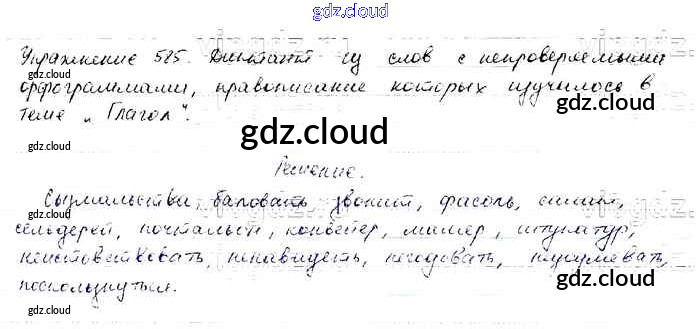 gdz.cloud
Упражнение 585. Диктант из слов с непроверяемыми
gdz.cloud
орфограммами, правописание которых изучилось в
gdz.cloud
теме „Глагол".
gdz.cloud
Решение.
Сызмальства, баловать, звонит, фасоль,
gdz.cloud
сельдерей, почтальон, конвейер, маляр, штукатур,
неистовствовать, ненавидеть, негодовать, недоумевать,
поскользнуться.
gdz.cloud
gdz.cloud